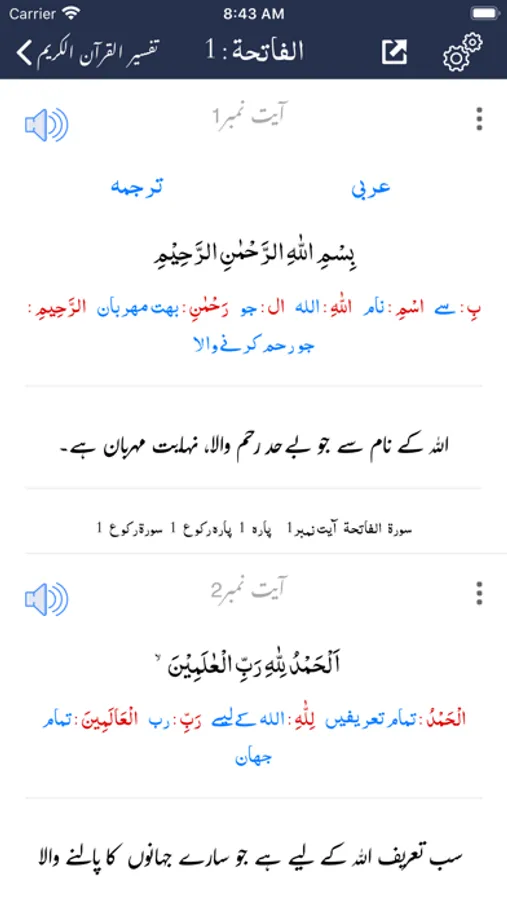 Carrier 8:43 AM
تفسیر القرآن الکریم الفاتحة : 1
آیت نمبر1
عربی ترجمه
بِسْمِ اللهِ الرَّحْمٰنِ الرَّحِيْمِ
بِ : سے اسْمِ : نام اللهِ : الله ال : جو رَحْمٰنِ : بهت مهربان الرَّحِيمِ :
جو رحم کرنے والا
اللہ کے نام سے جو بے حد رحم والا، نہایت مہربان ہے۔
سورة الفاتحة آیت نمبر1 پاره 1 پاره رکوع 1 سورة رکوع 1
آیت نمبر2
اَلْحَمْدُ لِلّٰهِ رَبِّ الْعٰلَمِيْنَ ۙ
الْحَمْدُ : تمام تعریفیں لِلّٰهِ : الله کے لیے رَبِّ : رب الْعَالَمِينَ : تمام
جهان
سب تعریف اللہ کے لیے ہے جو سارے جہانوں کا پالنے والا